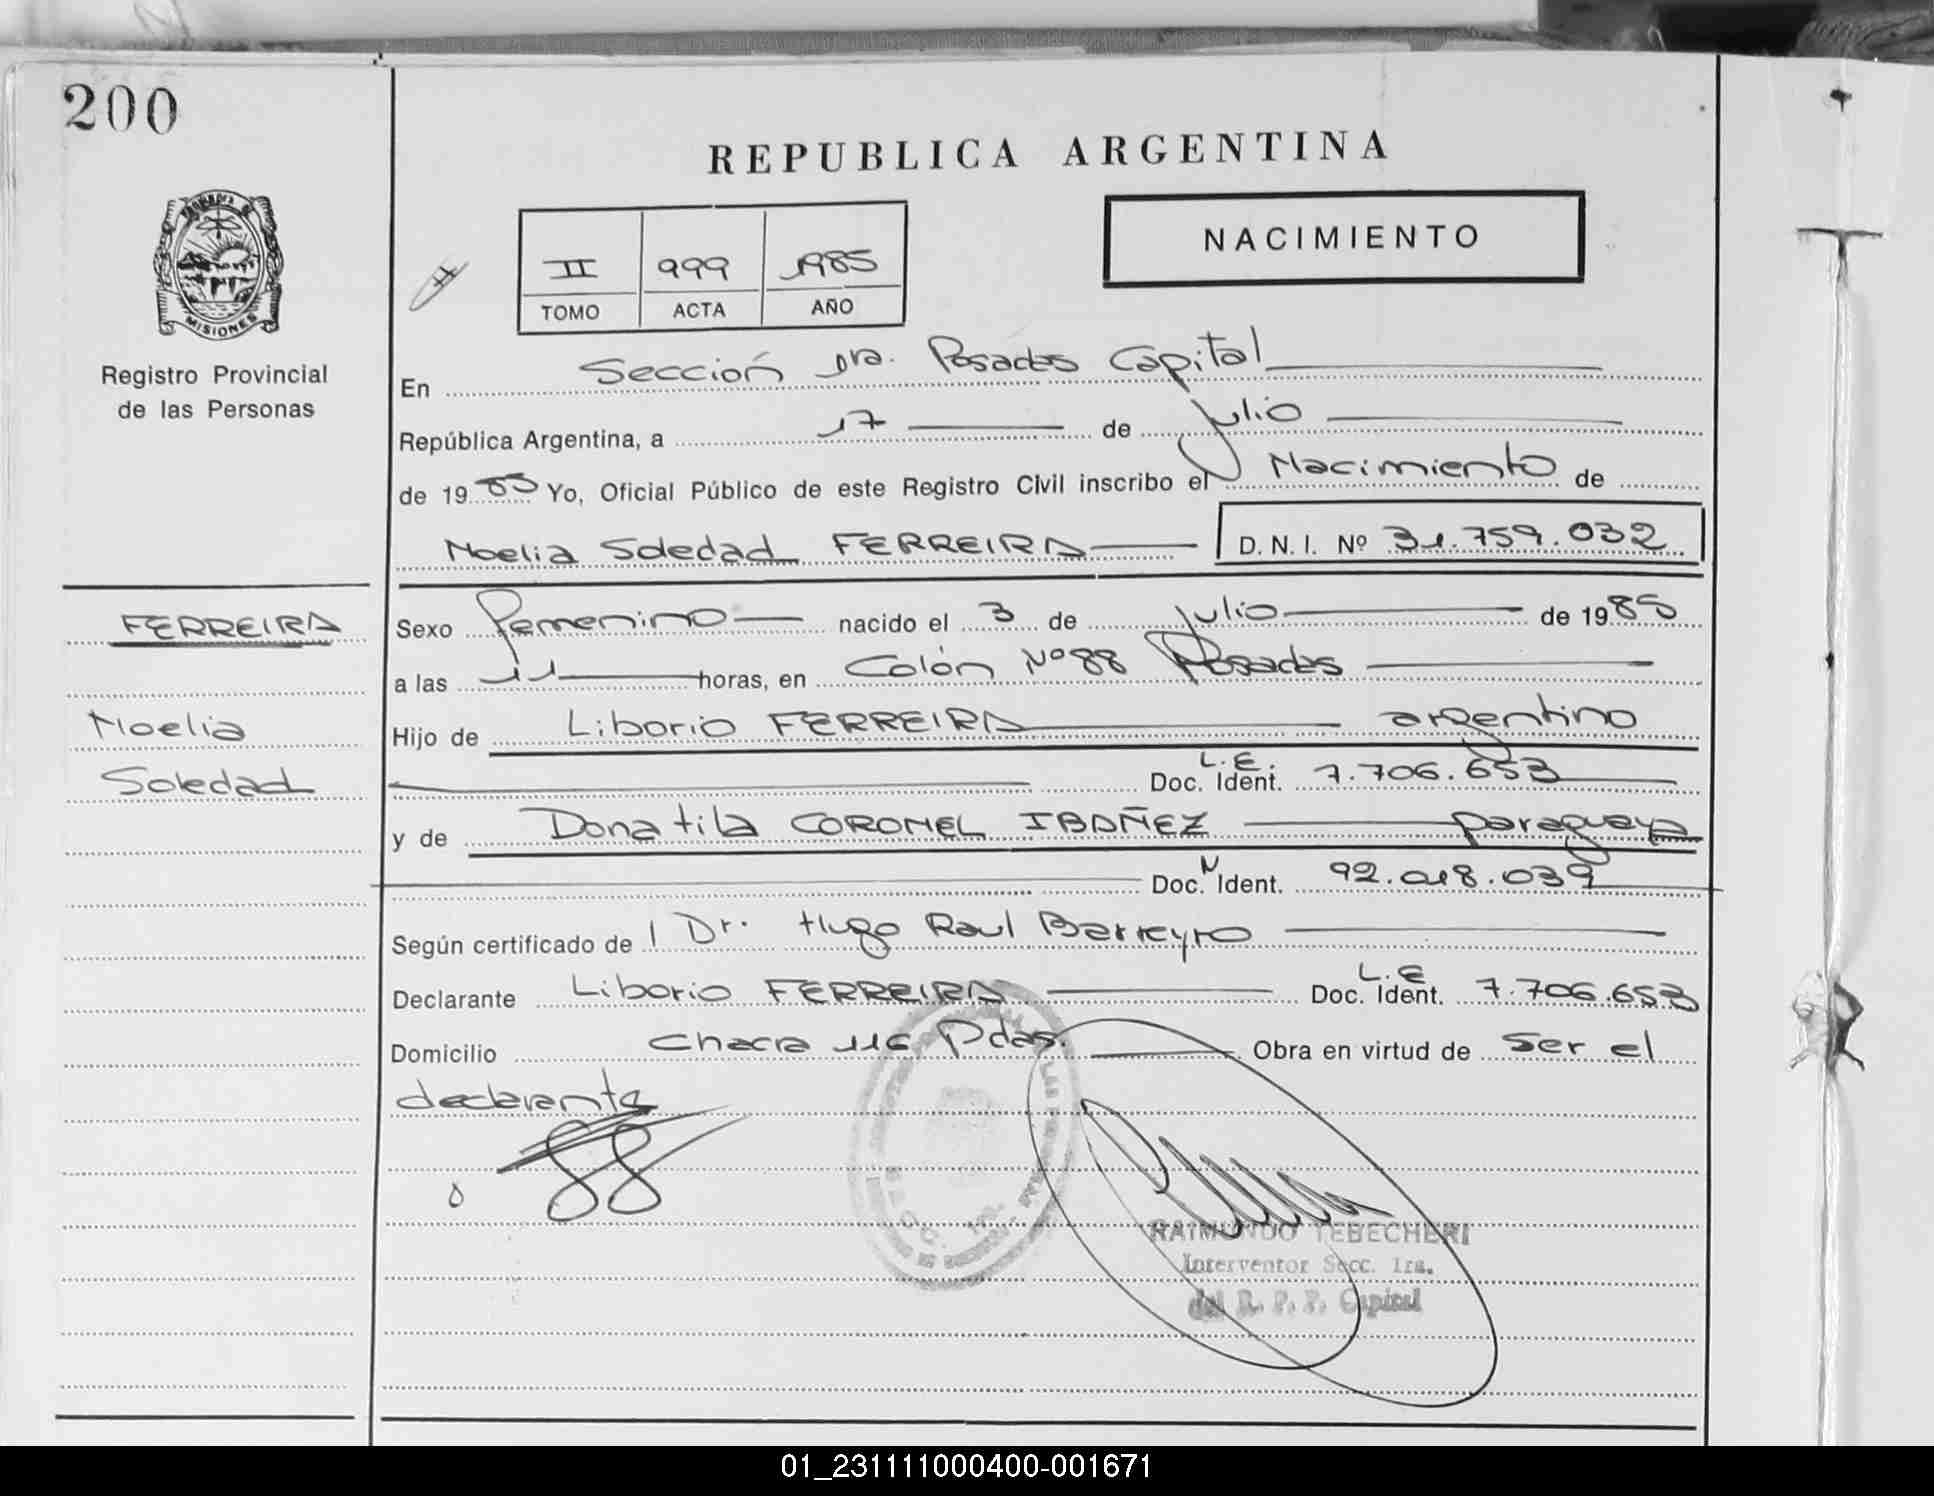 200
REPUBLICA ARGENTINA
NACIMIENTO
II 999 1985
TOMO ACTA AÑO
MISIONES
Registro Provincial
de las Personas
En Sección 1ra. Posadas Capital
República Argentina, a 17 de Julio
de 19 85 Yo, Oficial Público de este Registro Civil inscribo el Nacimiento de
Noelia Soledad FERREIRA D. N. I. Nº 31.759.032
FERREIRA
Noelia
Soledad
Sexo femenino nacido el 3 de Julio de 1985
a las 11 horas, en Colón Nº 88 Posadas
Hijo de Liborio FERREIRA argentino
L.E.
Doc. Ident. 7.706.653
y de Donatila CORONEL IBAÑEZ paraguaya
Doc. N Ident. 92.018.039
Según certificado de Dr. Hugo Raul Barreyro
Declarante Liborio FERREIRA L.E Doc. Ident. 7.706.653
Domicilio Chacra 116 Pdas. Obra en virtud de Ser el
declarante
RAIMUNDO TEBECHERI
Interventor Secc. 1ra.
del R. P. P. Capital
01_231111000400-001671